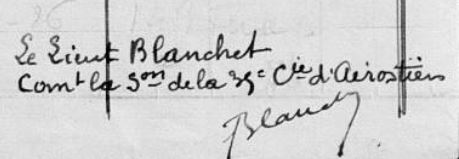 Le Lieut Blanchet
Comt la Son de la 39e Cie d'Aérostiers
Blanchet